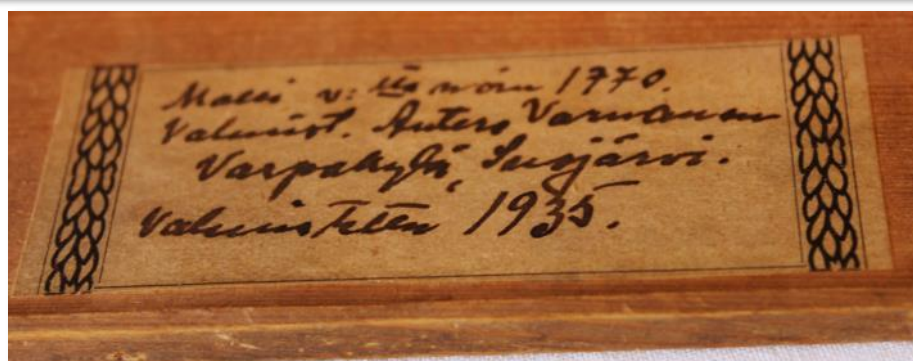 Malli v: lta noin 1770.
Valmist. Antero Varnanen
Varpakylä, Suojärvi.
Valmistettu 1935.